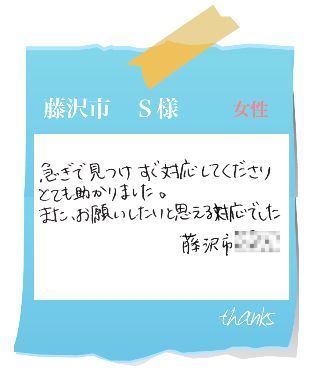 藤沢市　S様　女性
急ぎで見つけ ず対応してくださり
とても助かりました。
また、お願いしたいと思える対応でした
藤沢市
thanks